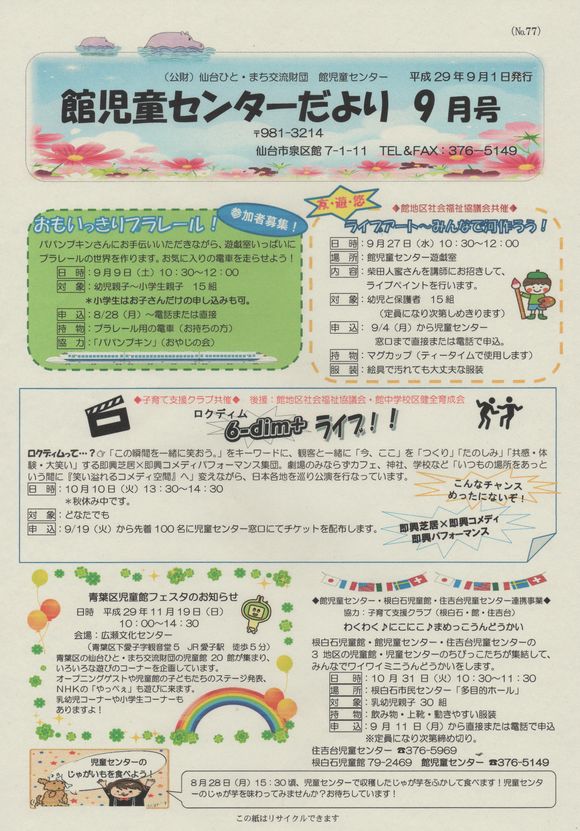 （No.77）
（公財）仙台ひと・まち交流財団　館児童センター　平成29年9月1日発行
館児童センターだより 9月号
〒981-3214
仙台市泉区館7-1-11　TEL＆FAX：376-5149
おもいっきりプラレール！
参加者募集！
パパンプキンさんにお手伝いいただきながら、遊戯室いっぱいに
プラレールの世界を作ります。お気に入りの電車を走らせよう！
日　時：9月9日（土）10：30～12：00
対　象：幼児親子～小学生親子　15組
＊小学生はお子さんだけの申し込みも可。
申　込：8/28（月）～電話または直接
持　物：プラレール用の電車（お持ちの方）
協　力：「パパンプキン」（おやじの会）
友・遊・悠
◆館地区社会福祉協議会共催◆
ライブアート～みんなで何作ろう！
日　時：9月27日（水）10：30～12：00
場　所：館児童センター遊戯室
内　容：柴田人蜜さんを講師にお招きして、
ライブペイントを行います。
対　象：幼児と保護者　15組
（定員になり次第しめきります）
申　込：9/4（月）から児童センター
窓口まで直接または電話で申込。
持　物：マグカップ（ティータイムで使用します）
服　装：絵具で汚れても大丈夫な服装
◆子育て支援クラブ共催◆　後援：館地区社会福祉協議会・館中学校区健全育成会
ロクディム
6-dim+ ライブ！！
ロクディムって…？☞「この瞬間を一緒に笑おう。」をキーワードに、観客と一緒に「今、ここ」を「つくり」「たのしみ」「共感・体
験・大笑い」する即興芝居×即興コメディパフォーマンス集団。劇場のみならずカフェ、神社、学校など「いつもの場所をあっと
いう間に『笑い溢れるコメディ空間』へ」変えながら、日本各地を巡り公演を行なっています。
日　時：10月10日（火）13：30～14：30
＊秋休み中です。
対　象：どなたでも
申　込：9/19（火）から先着100名に児童センター窓口にてチケットを配布します。
こんなチャンス
めったにないぞ！
即興芝居×即興コメディ
即興パフォーマンス
青葉区児童館フェスタのお知らせ
日時　平成29年11月19日（日）
10：00～14：30
会場：広瀬文化センター
（青葉区下愛子字観音堂5　JR愛子駅　徒歩5分）
青葉区の仙台ひと・まち交流財団の児童館20館が集まり、
いろいろな遊びのコーナーを企画しています。
オープニングゲストや児童館の子どもたちのステージ発表、
NHKの「やっぺぇ」も遊びに来ます。
乳幼児コーナーや小学生コーナーも
ありますよ！
◆館児童センター・根白石児童館・住吉台児童センター連携事業◆
協力：子育て支援クラブ（根白石・館・住吉台）
わくわく♪にこにこ♪まめっこうんどうかい
根白石児童館・館児童センター・住吉台児童センターの
3地区の児童館・児童センターのちびっこたちが集結して、
みんなでワイワイミニうんどうかいをします。
日　時：10月31日（火）10：30～11：30
場　所：根白石市民センター「多目的ホール」
対　象：乳幼児親子　30組
持　物：飲み物・上靴・動きやすい服装
申　込：9月11日（月）から直接または電話で申込
※定員になり次第締め切り。
住吉台児童センター ☎376-5969
根白石児童館 79-2469　館児童センター ☎376-5149
児童センターの
じゃがいもを食べよう！
8月28日（月）15：30頃、児童センターで収穫したじゃが芋をふかして食べます！児童センタ
ーのじゃが芋を味わってみませんか？お待ちしています！
この紙はリサイクルできます